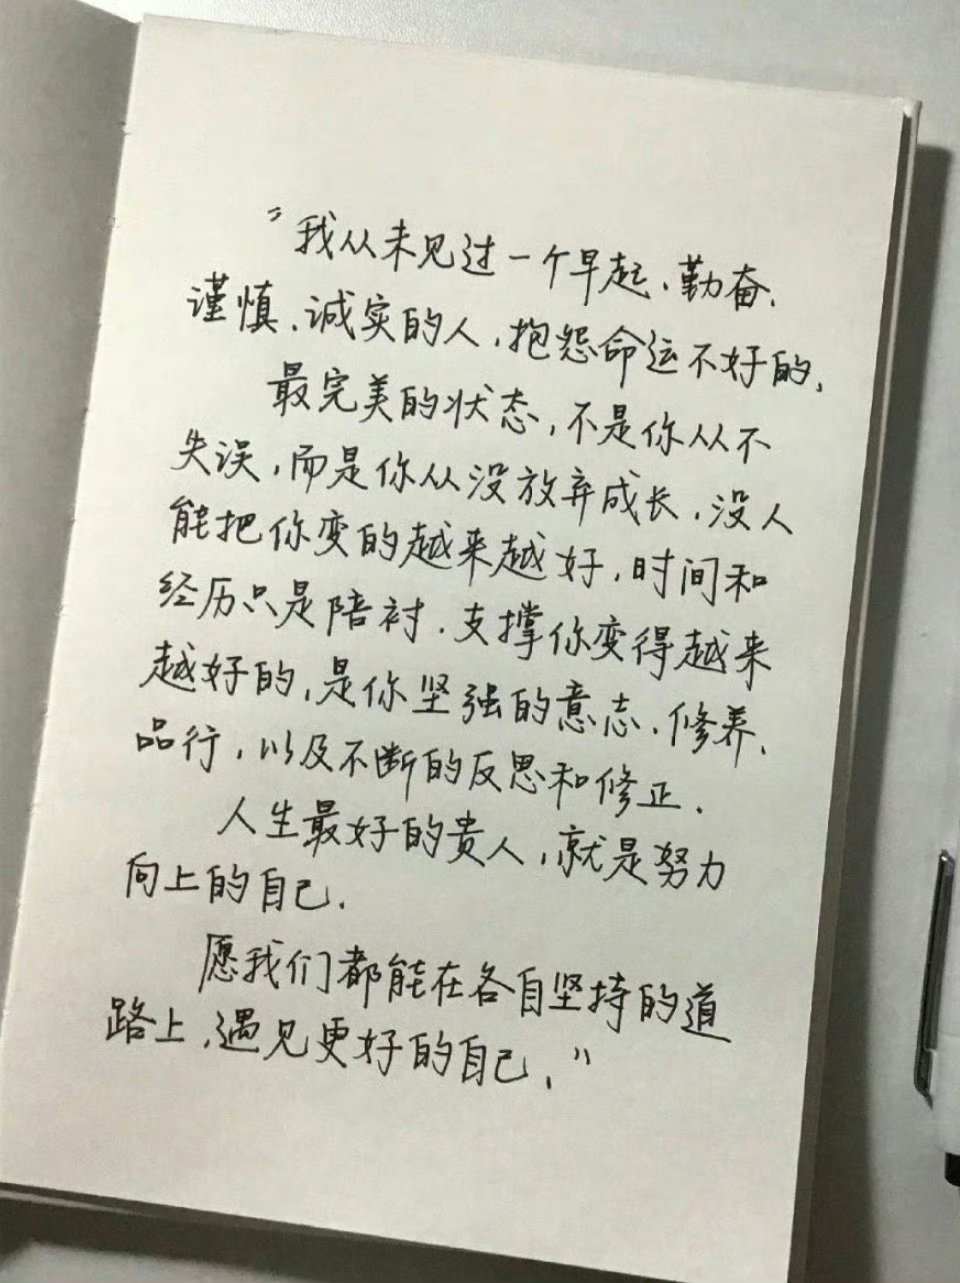 "我从未见过一个早起、勤奋、
谨慎、诚实的人,抱怨命运不好的.
最完美的状态,不是你从不
失误,而是你从没放弃成长.没人
能把你变的越来越好,时间和
经历只是陪衬.支撑你变得越来
越好的,是你坚强的意志、修养、
品行,以及不断的反思和修正.
人生最好的贵人,就是努力
向上的自己.
愿我们都能在各自坚持的道
路上,遇见更好的自己."